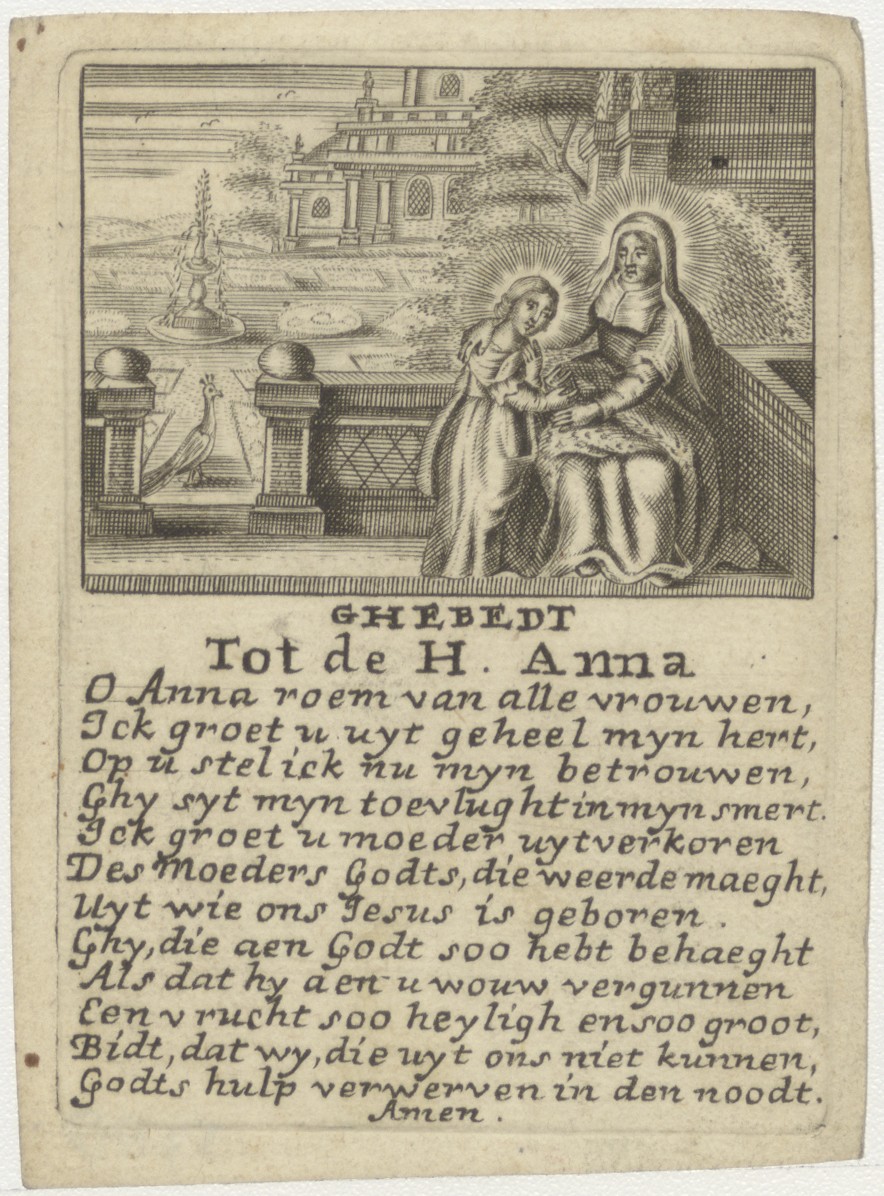 GHEBEDT
Tot de H. Anna
O Anna roem van alle vrouwen,
Ick groet u uyt geheel myn hert,
Op u stel ick nu myn betrouwen,
Ghy syt myn toevlught in myn smert.
Ick groet u moeder uytverkoren
Des Moeders Godts, die weerde maeght,
Uyt wie ons Iesus is geboren.
Ghy, die aen Godt soo hebt behaeght
Als dat hy aen u wouw vergunnen
Een vrucht soo heyligh en soo groot,
Bidt, dat wy, die uyt ons niet kunnen,
Godts hulp verwerven in den noodt.
Amen.